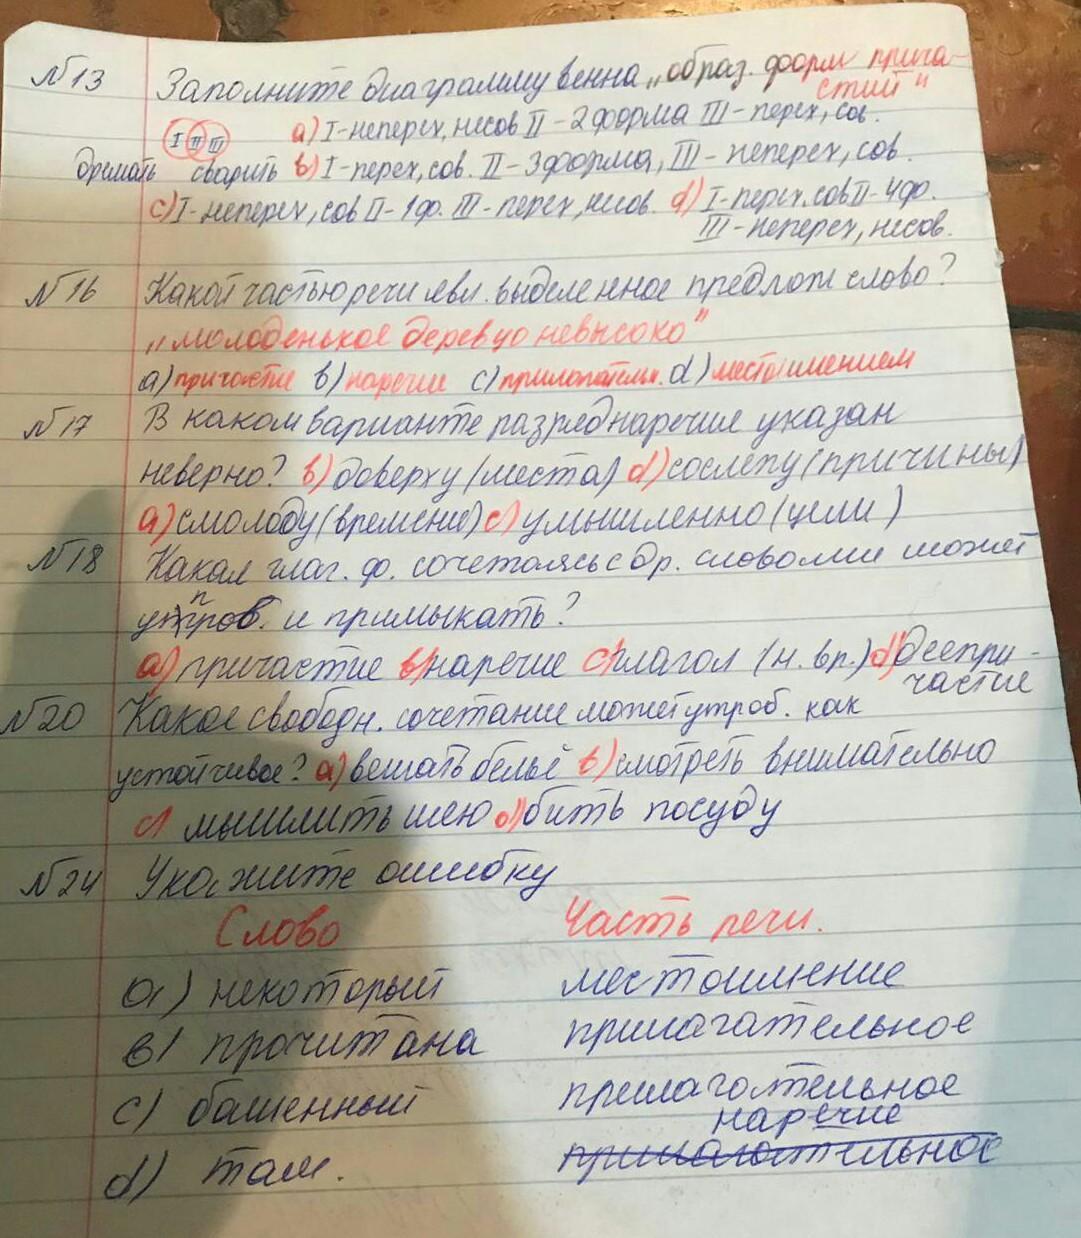 №13 Заполните диаграмму венна „образ. форм прича-
стий"
I II III а) I-неперех, несов II - 2 форма III - перех, сов.
дремать сварить в) I-перех, сов. II - 3 форма, III - неперех, сов.
с) I-неперех, сов II - 1ф. III - перех, несов. d) I-перех. сов II - 4ф.
III - неперех, несов.
№16 Какой частью речи явл. выделенное предлож слово?
„молоденькое деревцо невысоко"
а) причастие в) наречие с) прилагательн. d) местоимением
№17 В каком варианте разряд наречия указан
неверно? в) доверху (места) d) сослепу (причины)
а) смолоду (времени) с) умышленно (цели)
№18 Какая глаг. ф. сочетаясь с др. словами может
упров. и примыкать?
а) причастие в) наречие с) глагол (н. вр.) d) деепри-
частие
№20 Какое свободн. сочетание может упроб. как
устойчивое? а) вешать бельё в) смотреть внимательно
с) мылить шею d) бить посуду
№24 Укажите ошибку
Слово Часть речи.
а) некоторый местоимение
в) прочитана прилагательное
с) башенный прилагательное
наречие
d) там. прилагательное